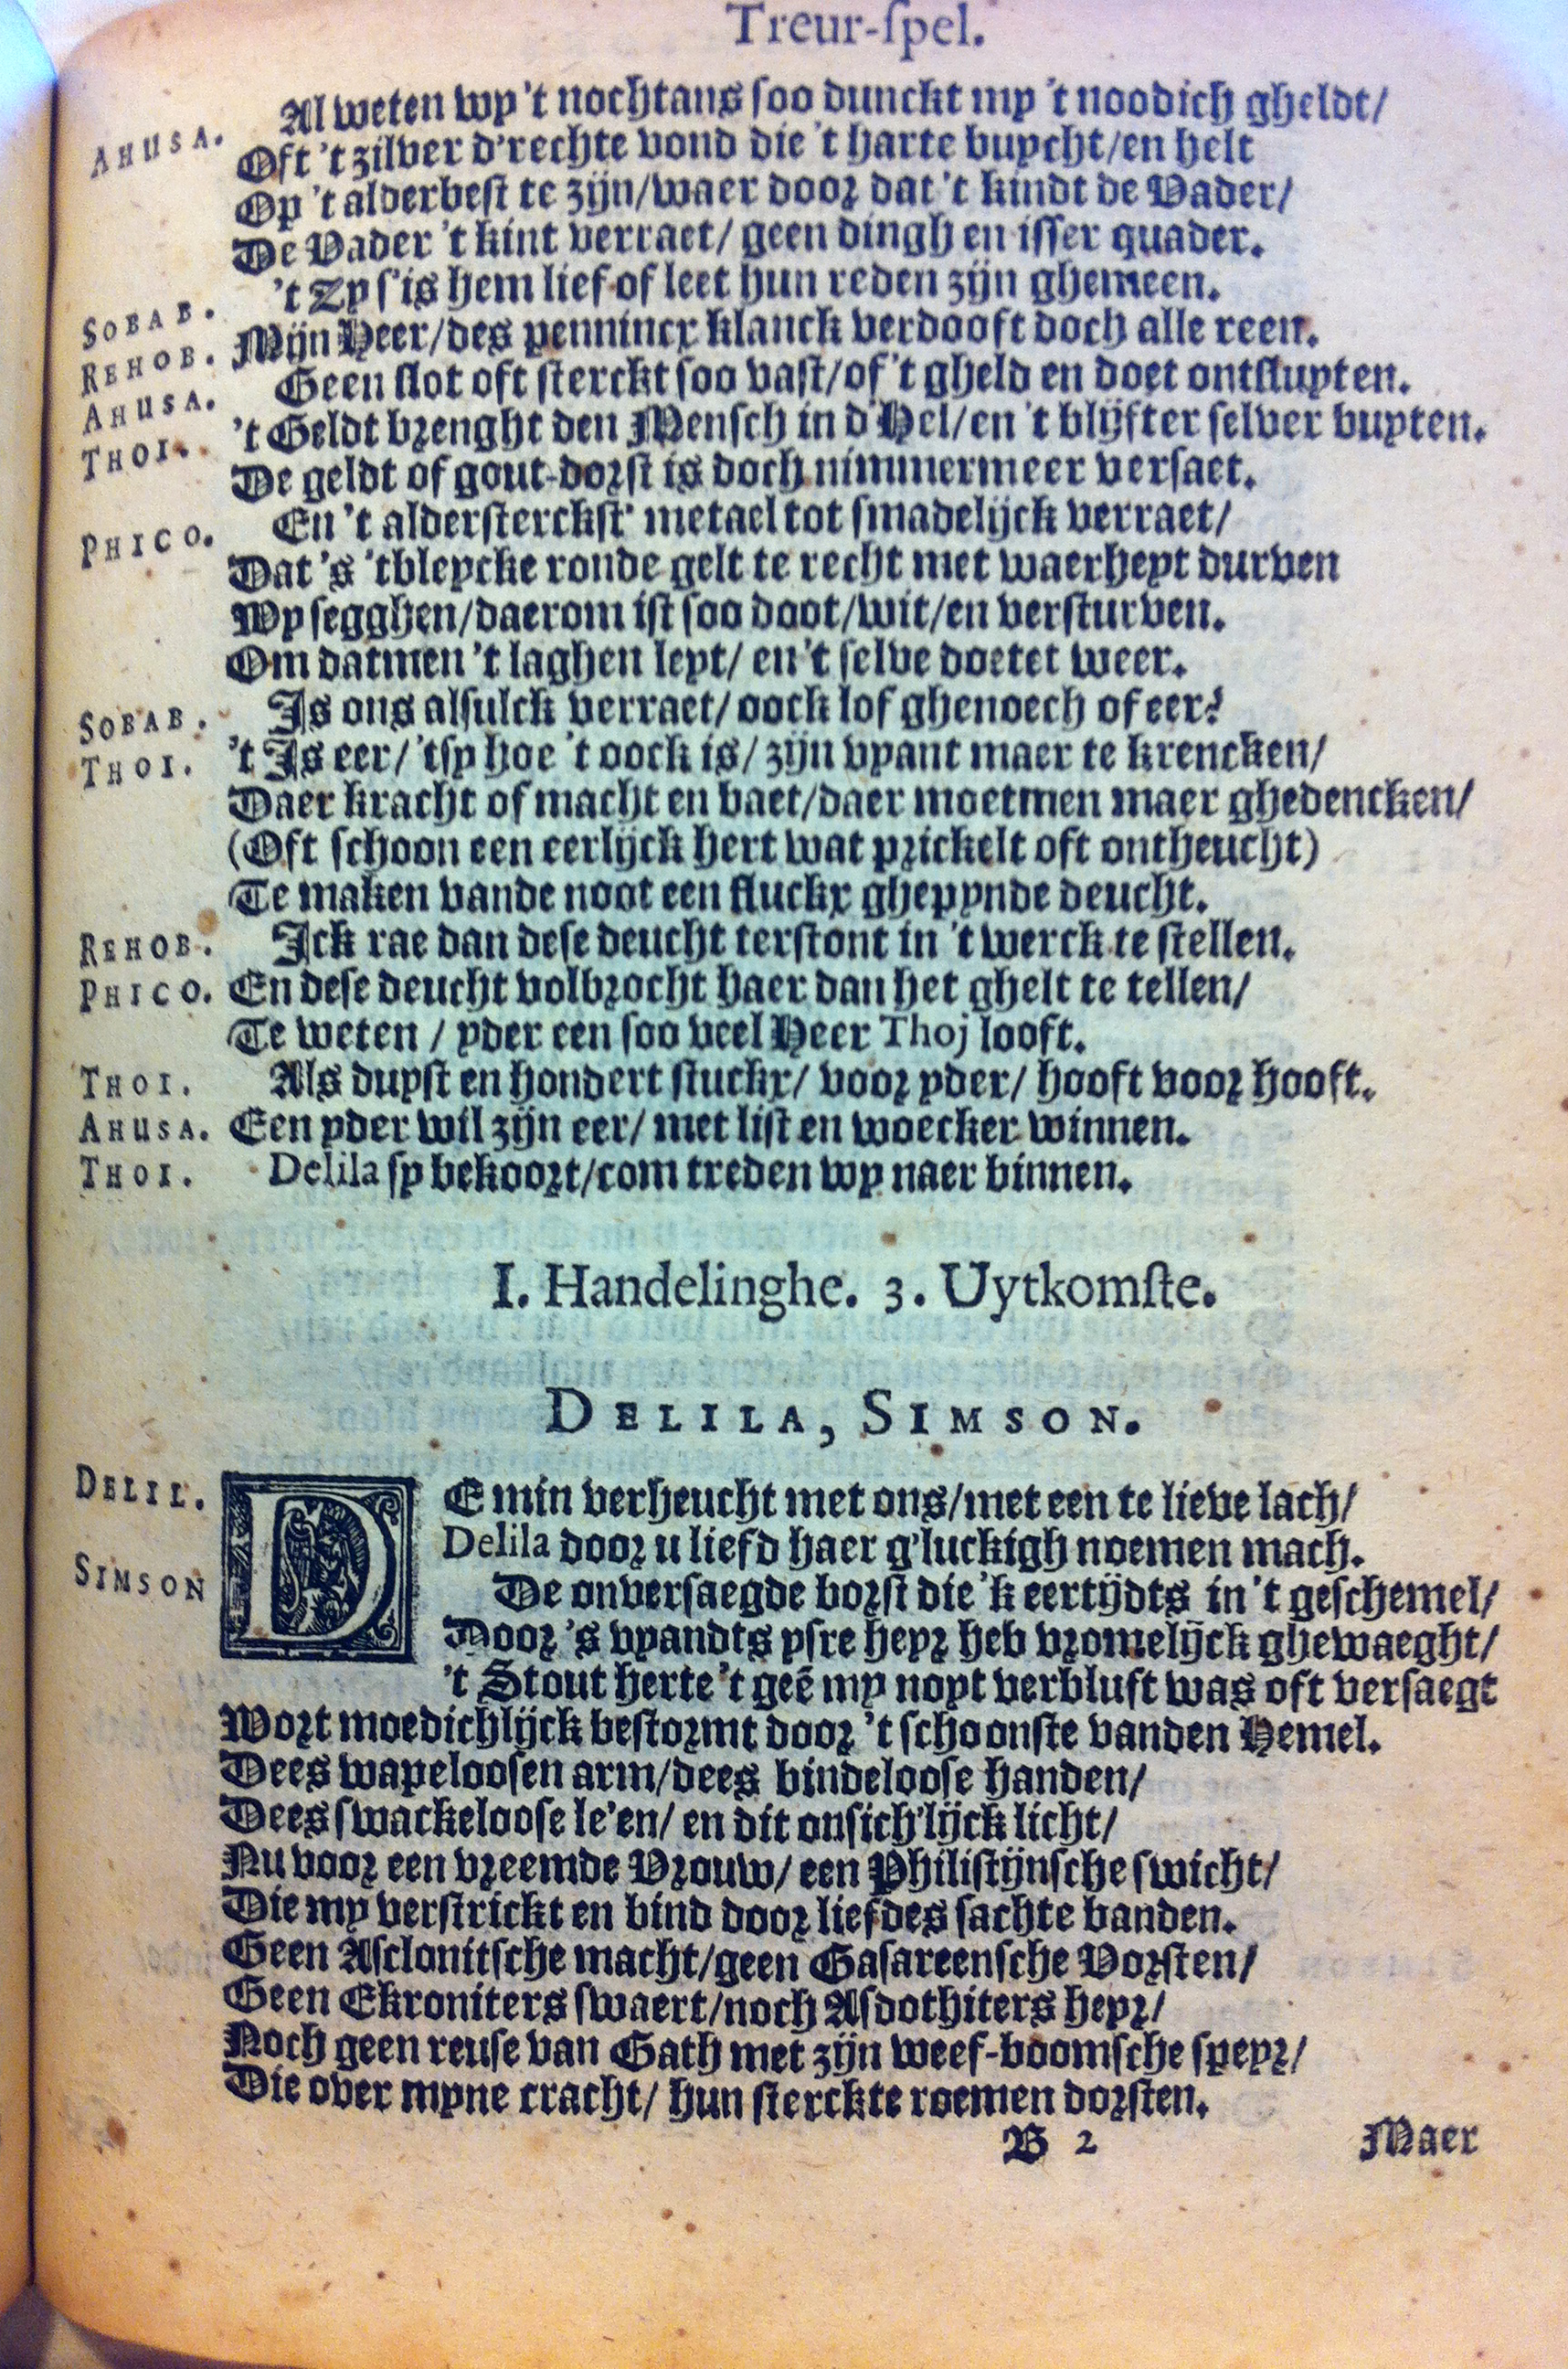 Treur-spel.
Al weten wy 't nochtans soo dunckt my 't noodich gheldt/
AHUSA. Oft 't zilver d'rechte vond die 't harte buycht/en helt
Op 't alderbest te zijn/waer door dat 't kindt de Vader/
De Vader 't kint verraet/ geen dingh en isser quader.
't Zy s'is hem lief of leet hun reden zijn ghemeen.
SOBAB. Mijn Heer/des pennincx klanck verdooft doch alle reen.
REHOB. Geen slot oft sterckt soo vast/of 't gheld en doet ontsluyten.
AHUSA. 't Geldt brenght den Mensch in d'Hel/en 't blijfter selver buyten.
THOI. De geldt of gout-dorst is doch nimmermeer versaet.
PHICO. En 't aldersterckst' metael tot smadelijck verraet/
Dat 's 'tbleycke ronde gelt te recht met waerheyt durven
Wy segghen/daerom ist soo doot/wit/en versturven.
Om datmen 't laghen leyt/ en 't selve doetet weer.
SOBAB. Is ons alsulck verraet/ oock lof ghenoech of eer?
THOI. 't Is eer/ 'tsy hoe 't oock is/ zijn vyant maer te krencken/
Daer kracht of macht en baet/daer moetmen maer ghedencken/
(Oft schoon een eerlijck hert wat prickelt oft ontheucht)
Te maken vande noot een fluckx ghepynde deucht.
REHOB. Ick rae dan dese deucht terstont in 't werck te stellen.
PHICO. En dese deucht volbrocht haer dan het ghelt te tellen/
Te weten / yder een soo veel Heer Thoj looft.
THOI. Als duyst en hondert stuckx/ voor yder/ hooft voor hooft.
AHUSA. Een yder wil zijn eer/ met list en woecker winnen.
THOI. Delila sy bekoort/com treden wy naer binnen.
I. Handelinghe. 3. Uytkomste.
DELILA, SIMSON.
DELIL. DE min verheucht met ons/met een te lieve lach/
Delila door u liefd haer g'luckigh noemen mach.
SIMSON De onversaegde borst die 'k eertijdts in 't geschemel/
Door 's vyandts ysre heyr heb vromelijck ghewaeght/
't Stout herte 't geē my noyt verbluft was oft versaegt
Wort moedichlijck bestormt door 't schoonste vanden Hemel.
Dees wapeloosen arm/dees bindeloose handen/
Dees swackeloose le'en/ en dit onsich'lijck licht/
Nu voor een vreemde Vrouw/ een Philistijnsche swicht/
Die my verstrickt en bind door liefdes sachte banden.
Geen Asclonitsche macht/geen Gasareensche Vorsten/
Geen Ekroniters swaert/noch Asdothiters heyr/
Noch geen reuse van Gath met zijn weef-boomsche speyr/
Die over myne cracht/ hun sterckte roemen dorsten.
B 2 Maer